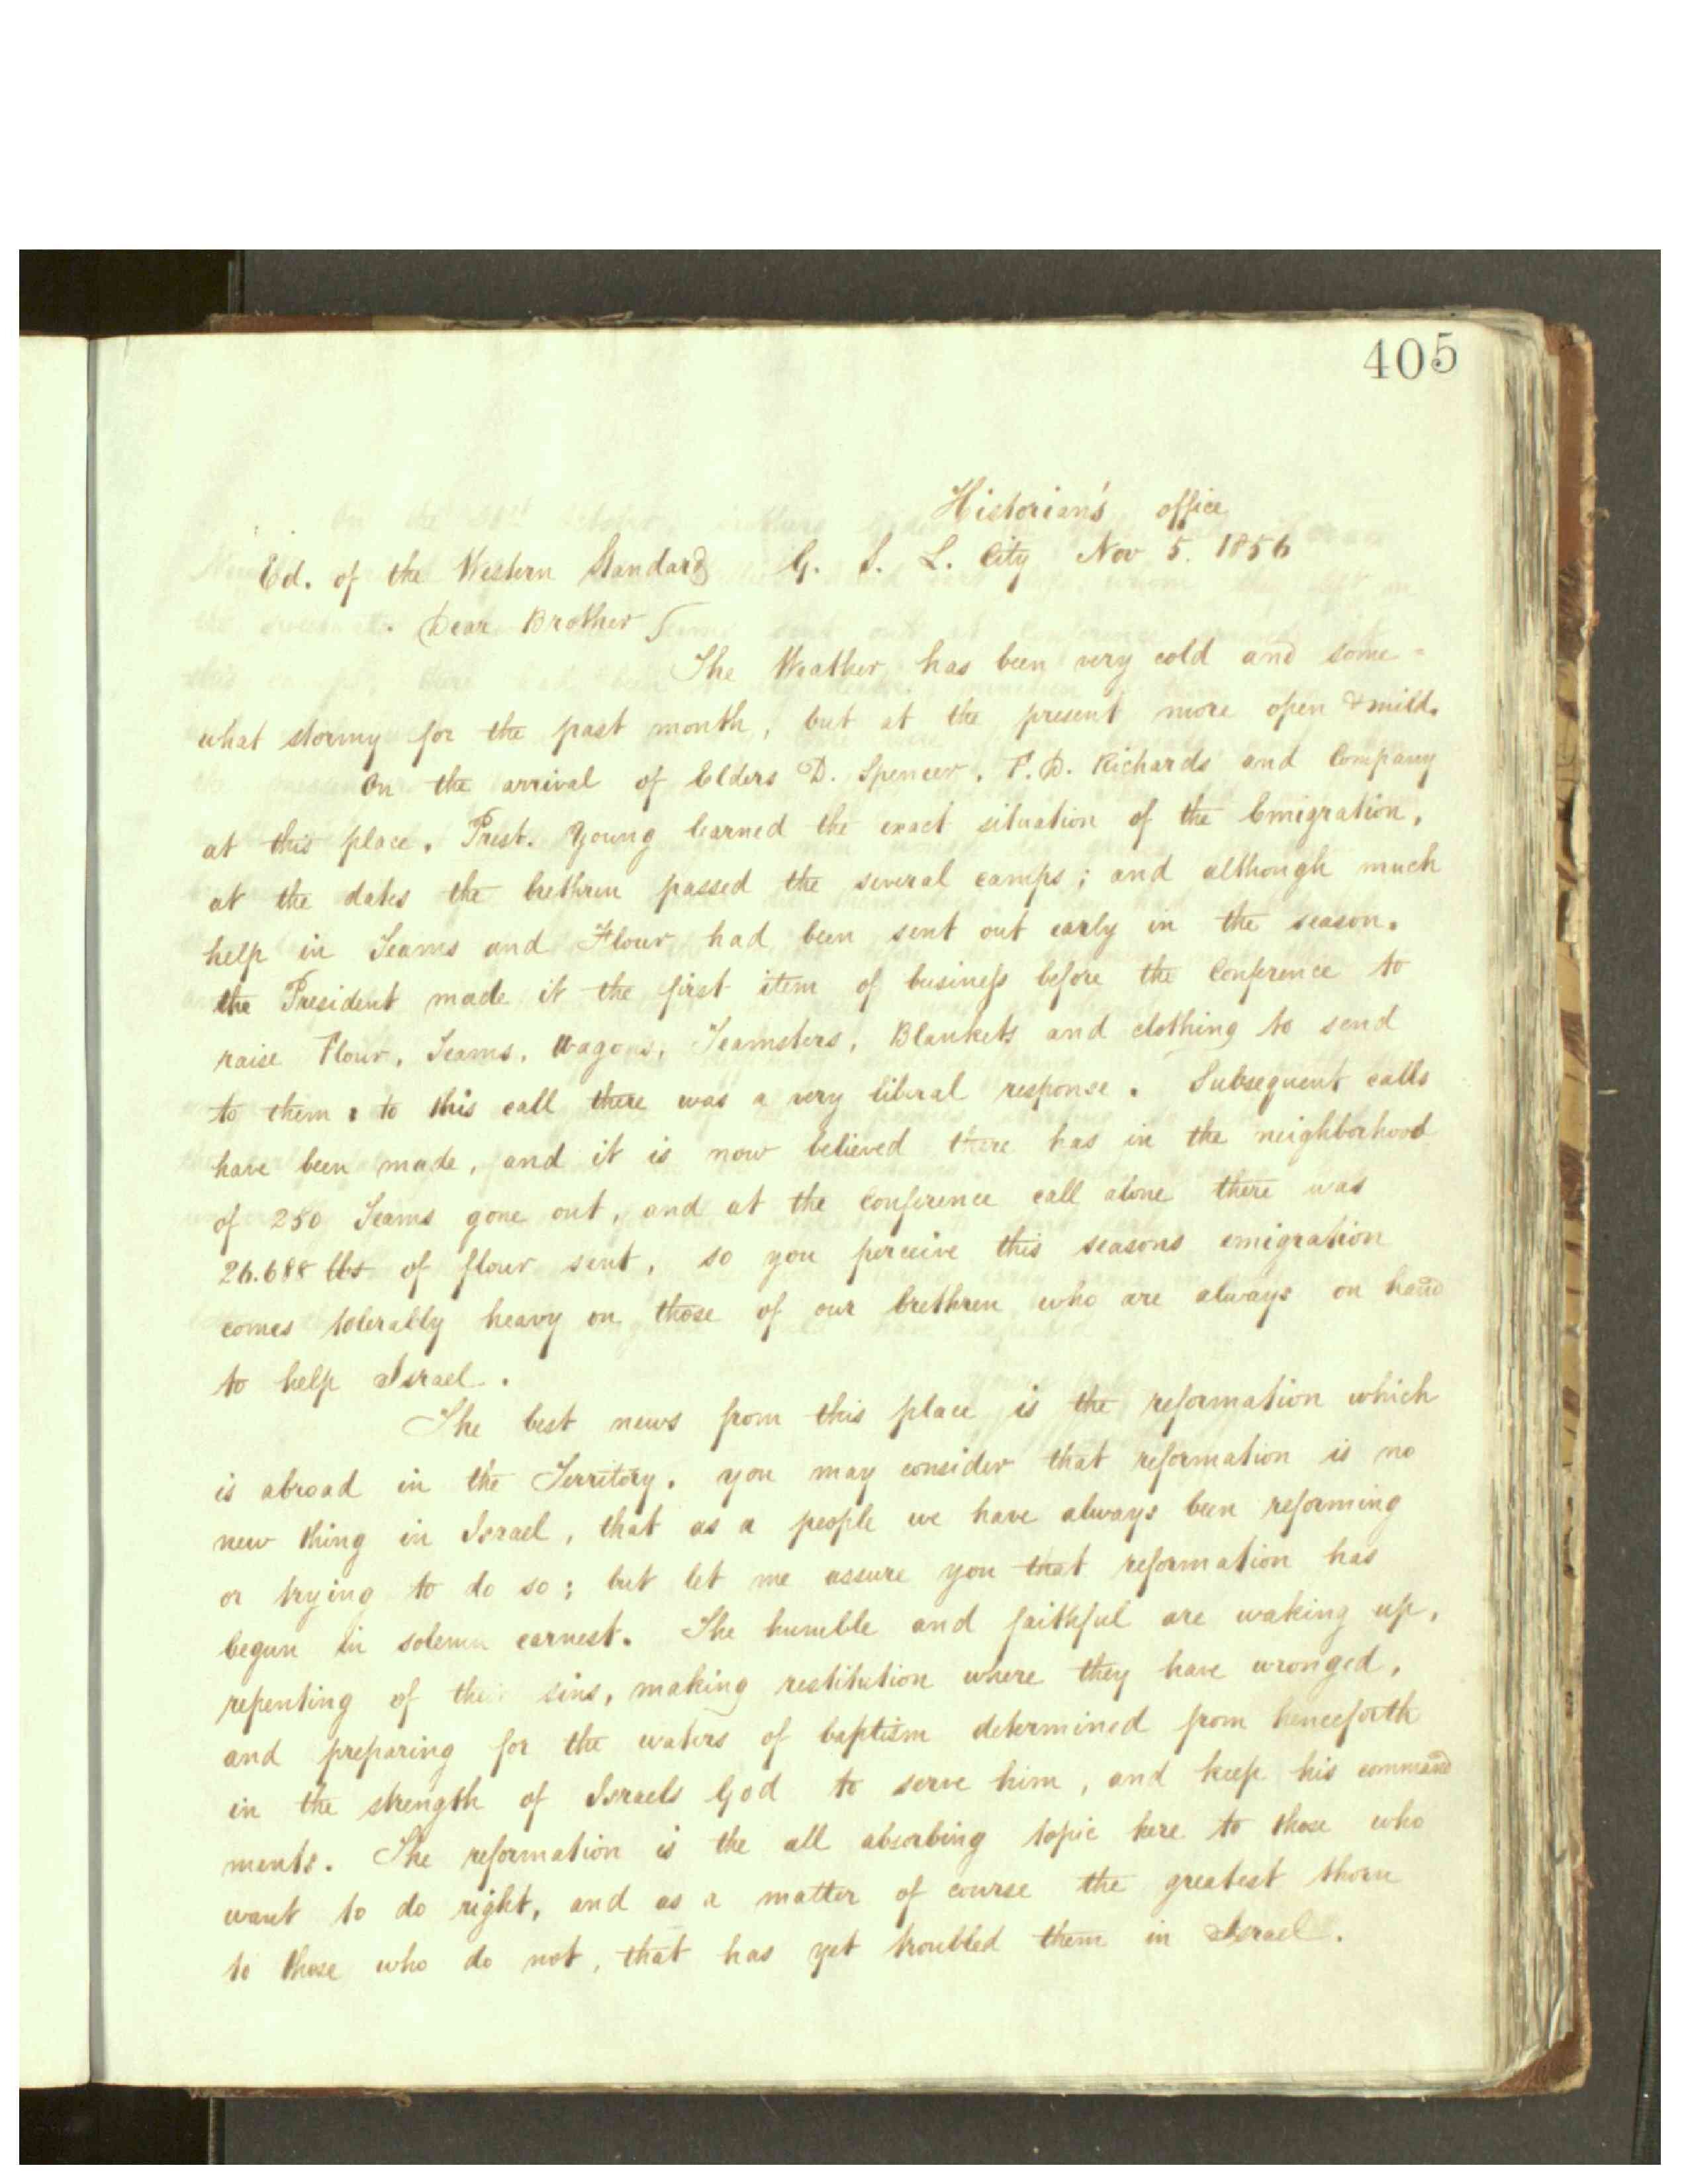 405
Historian's office
Ed. of the Western Standard G. S. L. City Nov 5. 1856
Dear Brother
The Weather has been very cold and some-
what stormy for the past month, but at the present more open & mild.
On the arrival of Elders D. Spencer, F. D. Richards and Company
at this place, Prest. Young learned the exact situation of the Emigration,
at the dates the brethren passed the several camps; and although much
help in Teams and Flour had been sent out early in the season.
the President made it the first item of business before the Conference to
raise Flour, Teams, Wagons, Teamsters, Blankets and clothing to send
to them; to this call there was a very liberal response. Subsequent calls
have been made, and it is now believed there has in the neighborhood
of 250 Teams gone out, and at the conference call alone there was
26.688 lbs of flour sent, so you perceive this seasons emigration
comes tolerally heavy on those of our brethren who are always on hand
to help Israel.
The best news from this place is the reformation which
is abroad in the Territory. you may consider that reformation is no
new thing in Israel, that as a people we have always been reforming
or trying to do so; but let me assure you that reformation has
begun in solemn earnest. The humble and faithful are waking up,
repenting of their sins, making restitution where they have wronged,
and preparing for the waters of baptism determined from henceforth
in the strength of Israels God to serve him, and keep his command
ments. The reformation is the all absorbing topic here to those who
want to do right, and as a matter of course the greatest thorn
to those who do not, that has yet troubled them in Israel.